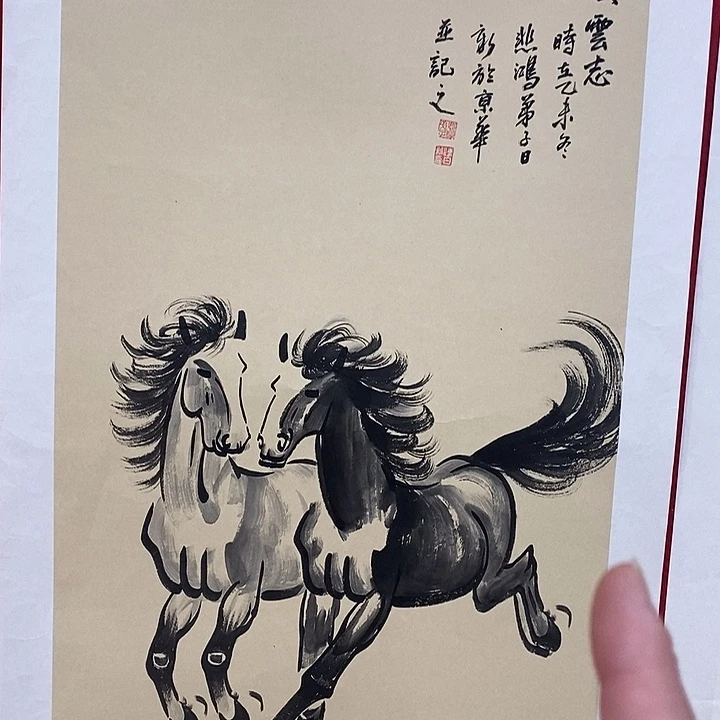 雲志
時在乙未冬
悲鴻弟子日
新於京華
並記之